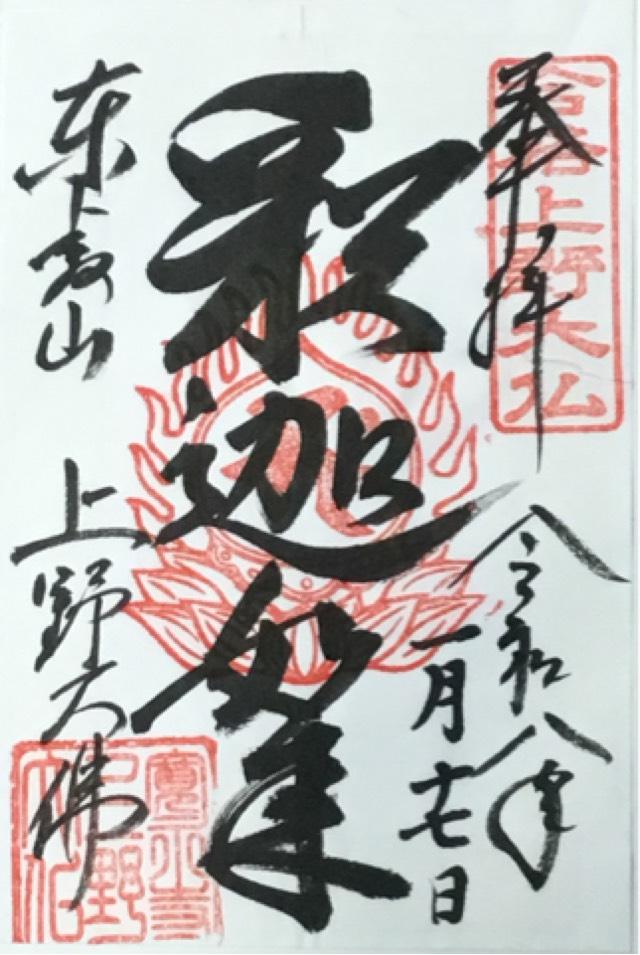 奉拝
合格上野大仏
令和八年
一月十七日
釈迦如来
東叡山
上野大佛
寛永寺
上野
大仏